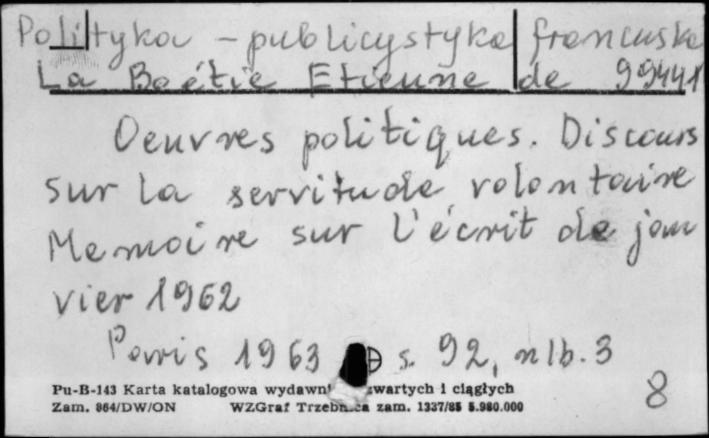 Polityka - publicystyka francuska
La Boétie Etienne de 99441
Oeuvres politiques. Discours
sur la servitude volontaire
Memoire sur l'écrit de jan
vier 1962
Paris 1963 s. 92, nlb. 3
Pu-B-143 Karta katalogowa wydawn zwartych i ciągłych
8
Zam. 864/DW/ON WZGraf Trzebnica zam. 1337/85 5.980.000